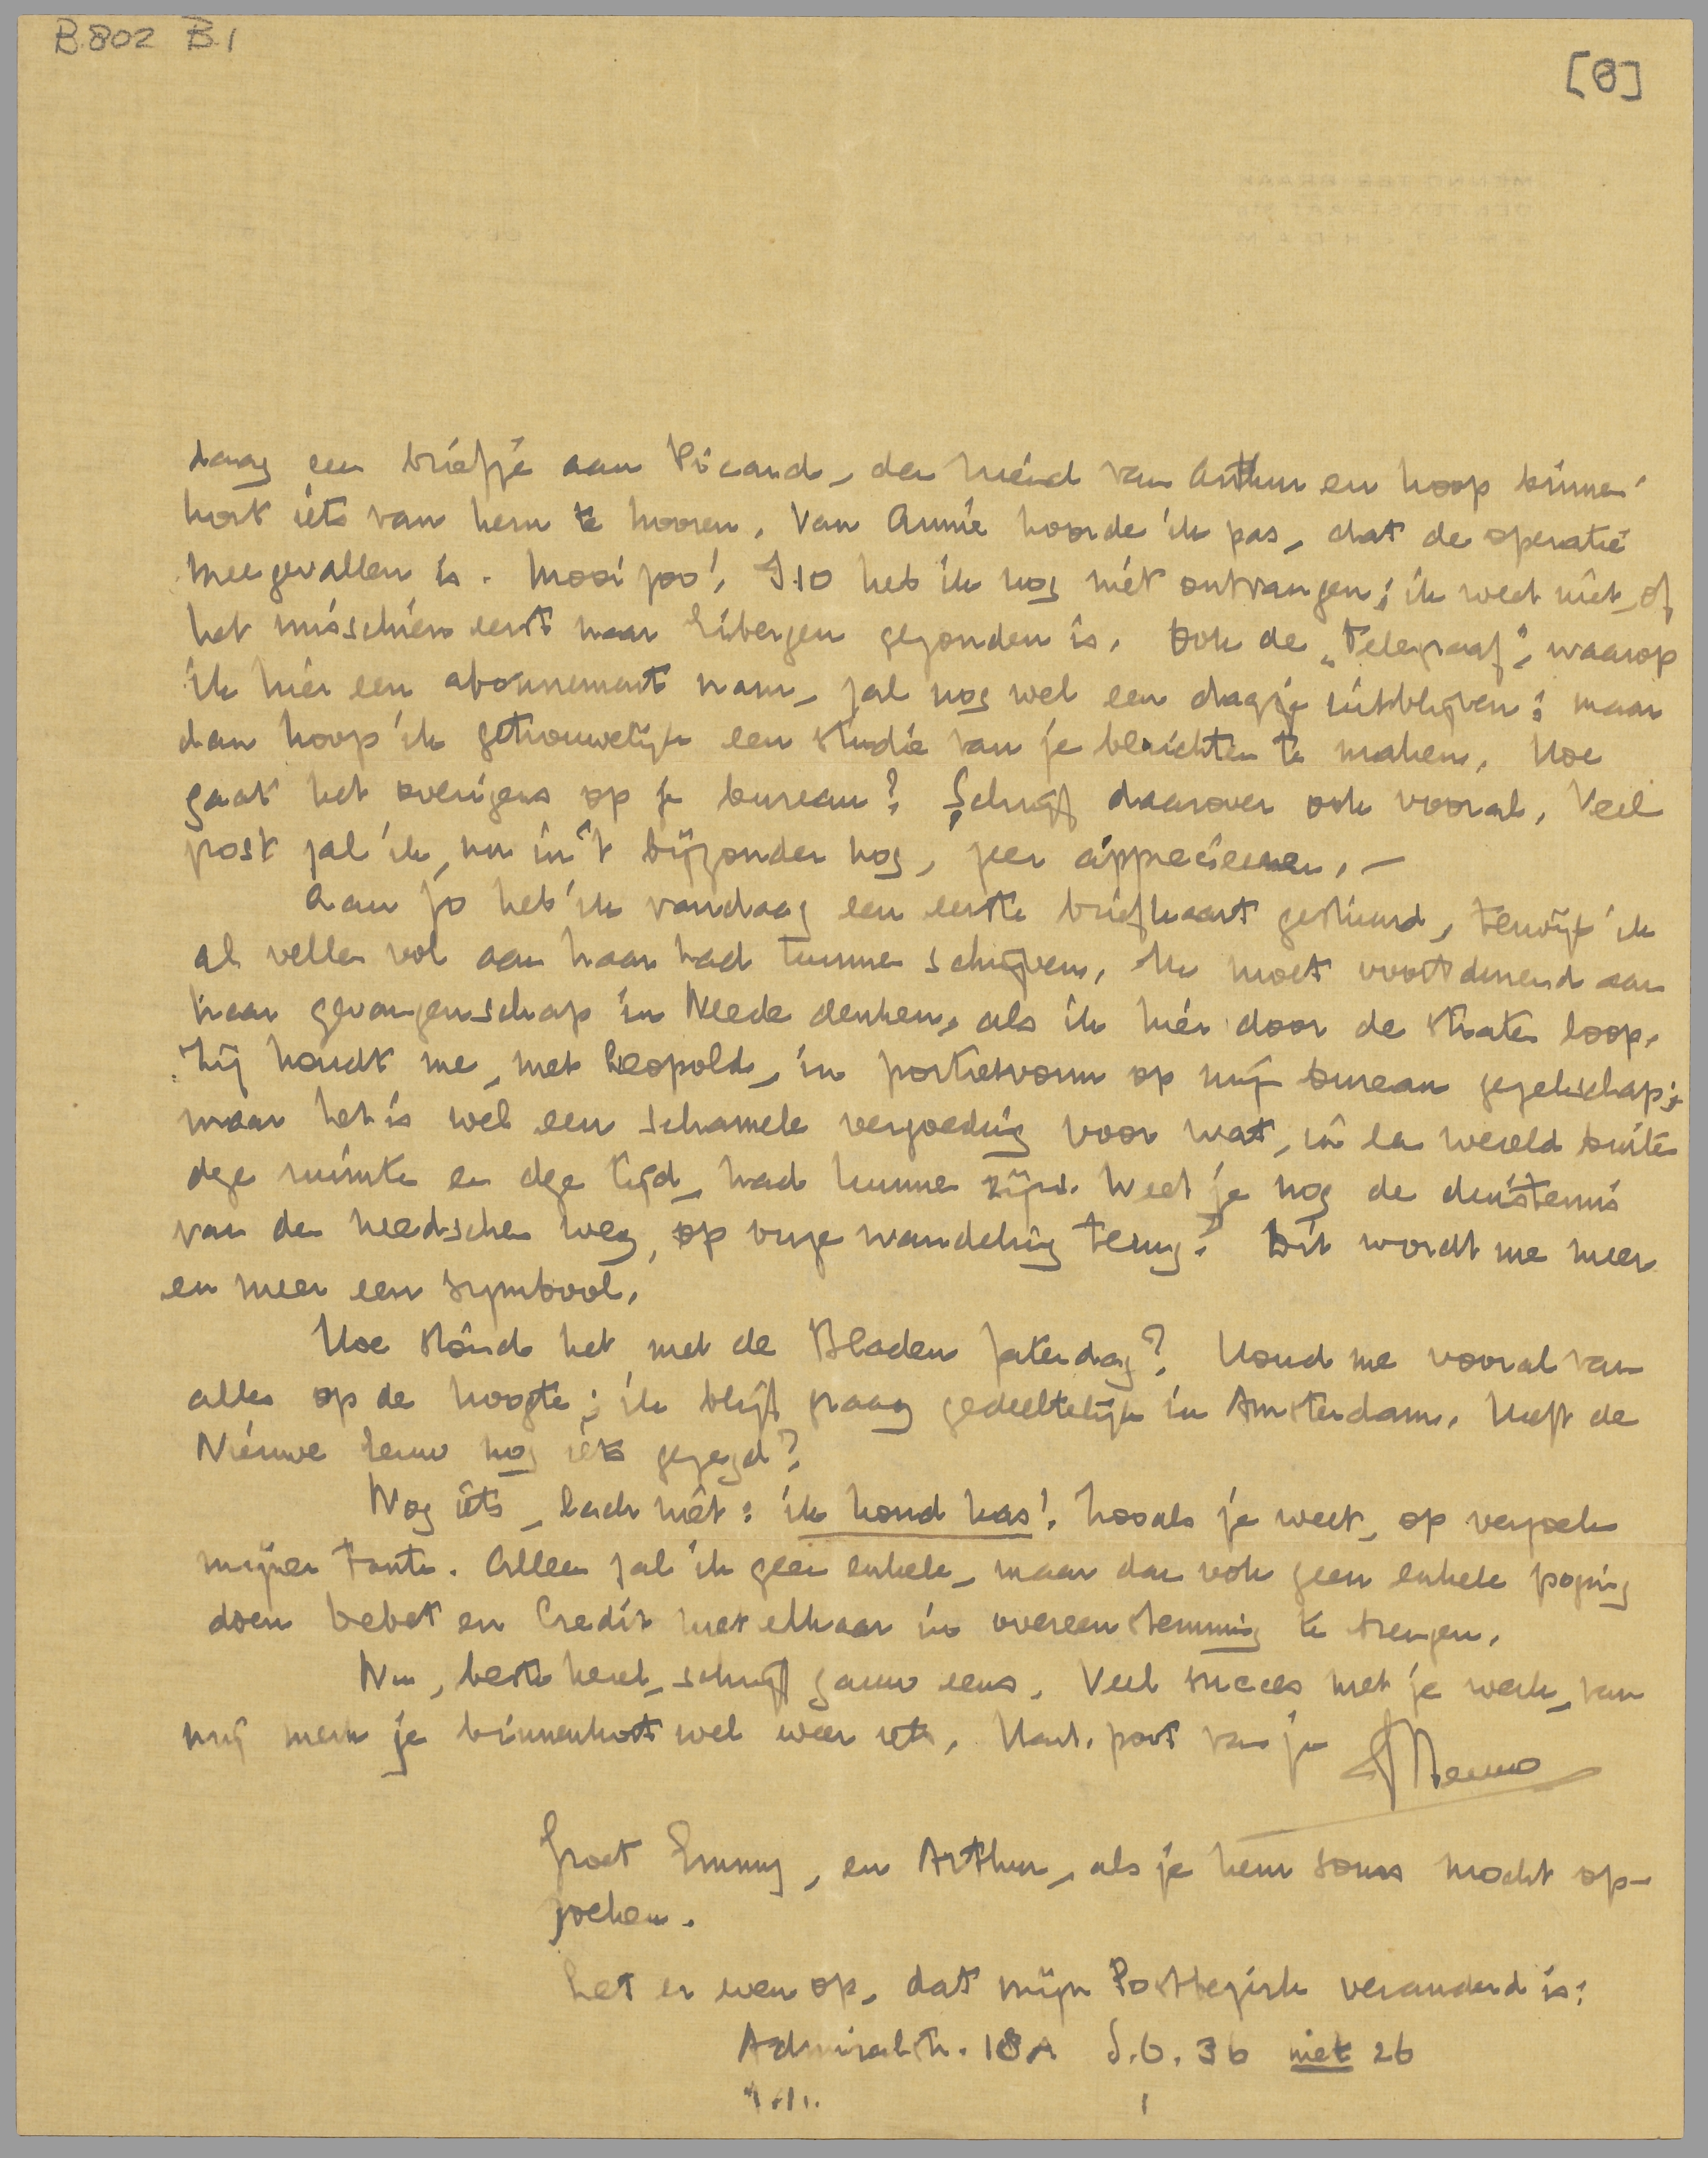 B.802 B.1
[8]
daag een briefje aan Picard, den vriend van Arthur en hoop binnen-
kort iets van hem te hooren. Van Annie hoorde ik pas, dat de operatie
meegevallen is. Mooi zoo! I.10 heb ik nog niet ontvangen; ik weet niet, of
het misschien eerst naar Eibergen gezonden is. Ook de „Telegraaf", waarop
ik hier een abonnement nam, zal nog wel een dagje uitblijven; maar
dan hoop ik getrouwelijk een studie van je berichten te maken. Hoe
gaat het overigens op je bureau? Schrijf daarover ook vooral. Veel
post zal ik, nu in 't bijzonder nog, zeer appreciëeren. —
Aan Jo heb ik vandaag een eerste briefkaart gestuurd, terwijl ik
al vellen vol aan haar had kunnen schrijven. Ik moet voortdurend aan
haar gevangenschap in Neede denken, als ik hier door de straten loop.
Zij houdt me, met Leopold, in portretvorm op mijn bureau gezelschap;
maar het is wel een schamele vergoeding voor wat, in een wereld buiten
deze ruimte en deze tijd, had kunnen zijn. Weet je nog de duisternis
van den needschen weg, op onze wandeling terug? Dit wordt me meer
en meer een symbool.
Hoe stond het met de Bladen Zaterdag? Houd me vooral van
alles op de hoogte; ik blijf graag gedeeltelijk in Amsterdam. Heeft de
Nieuwe Eeuw nog iets gezegd?
Nog iets, lach niet: ik houd kas! Zooals je weet, op verzoek
mijner tante. Alleen zal ik geen enkele, maar dan ook geen enkele poging
doen Debet en Credit met elkaar in overeenstemming te brengen.
Nu, beste kerel, schrijf gauw eens. Veel succes met je werk, van
mij merk je binnenkort wel weer iets. Hart. poot van je Menno
Groet Emmy, en Arthur, als je hem soms mocht op-
zoeken.
Let er even op, dat mijn Postbezirk veranderd is:
Admiralstr. 18A S.O. 36 niet 26